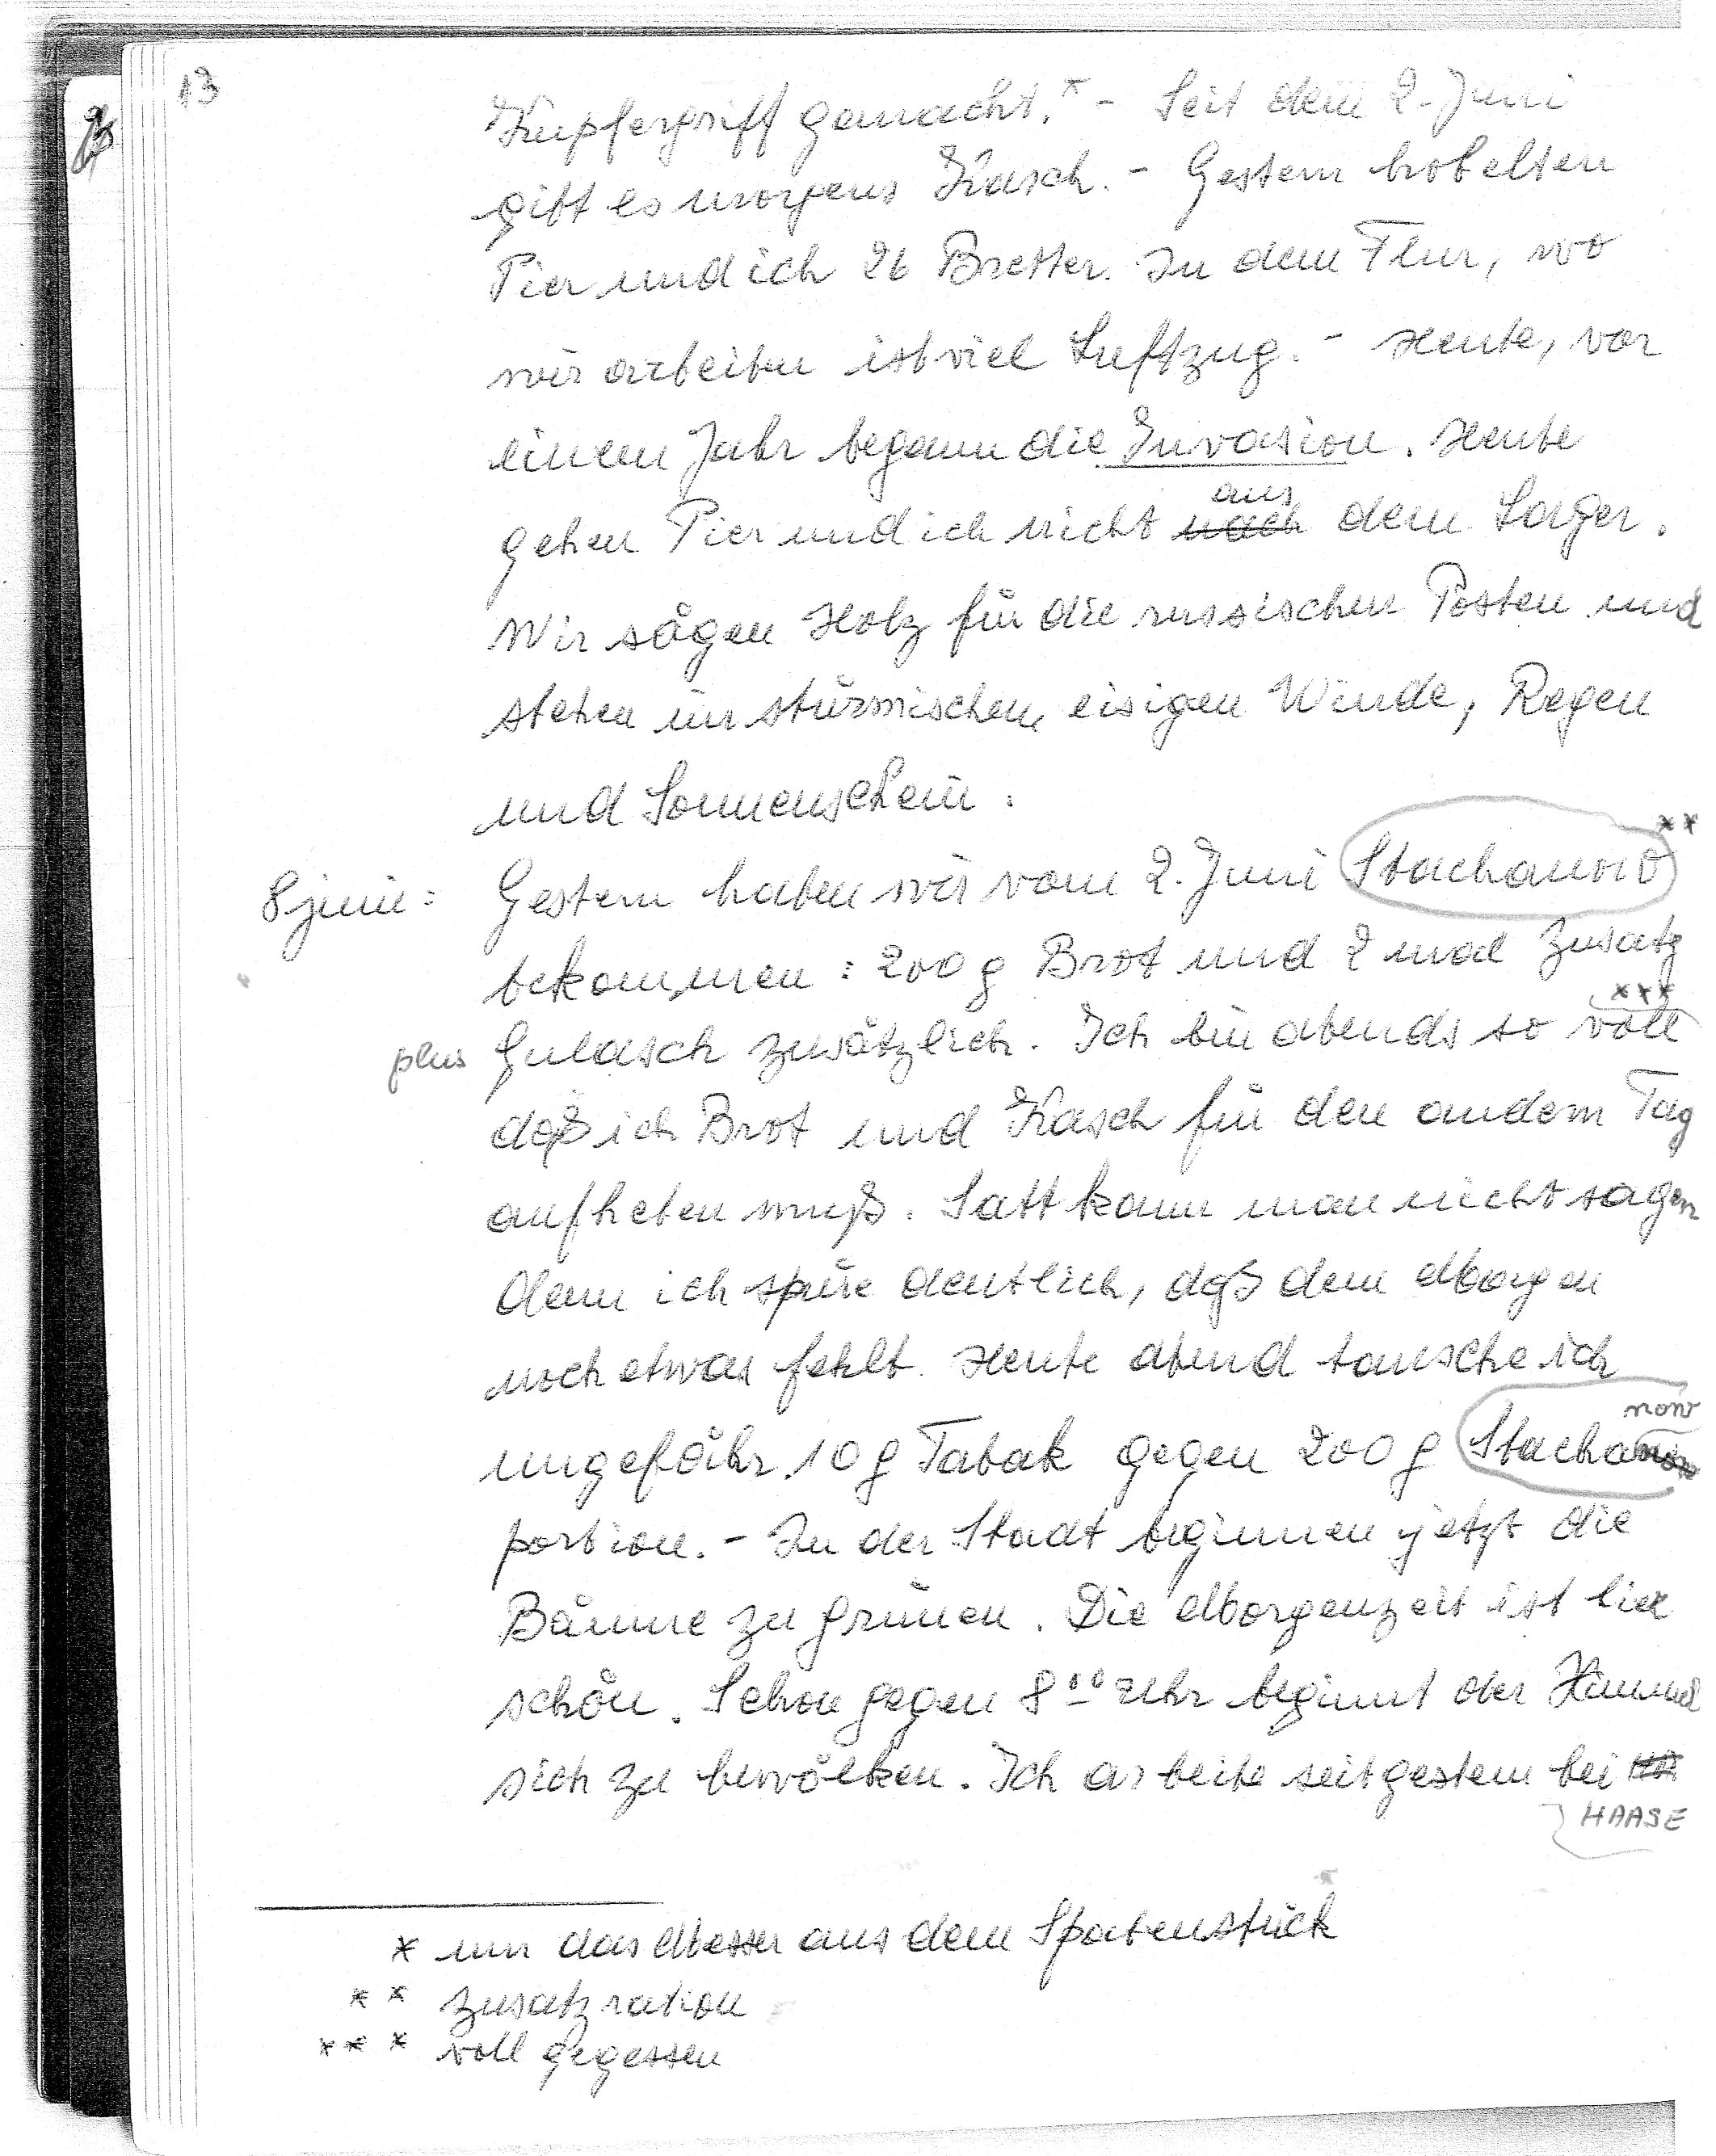 13
Kupfergriff gemacht.* - Seit dem 2. Juni
gibt es morgens Kasch. - Gestern hobelten
Pier und ich 26 Bretter. In dem Flur, wo
wir arbeiten ist viel Luftzug. - Heute, vor
einem Jahr begann die Invasion. Heute
aus
gehen Pier und ich nicht nach dem Lager.
Wir sägen Holz für die russischen Posten und
stehen im stürmischen, eisigen Winde, Regen
und Sonnenschein.
8 juni: Gestern haben wir vom 2. Juni Stachanow **
bekommen: 200 g Brot und 2 mal Zusatz
plus Gulasch zusätzlich. Ich bin abends so voll ***
daß ich Brot und Kasch für den andern Tag
aufheben muß. Satt kann man nicht sagen
denn ich spüre deutlich, daß dem Magen
noch etwas fehlt. Heute abend tausche ich
ungefähr 10 g Tabak gegen 200 g Stachanow
portion. - In der Stadt beginnen jetzt die
Bäume zu grünen. Die Morgenzeit ist hier
schön. Schon gegen 8⁰⁰ Uhr beginnt der Himmel
sich zu bewölken. Ich arbeite seit gestern bei
HAASE
* nur das Messer aus dem Spatenstück
** Zusatzration
*** voll gegessen